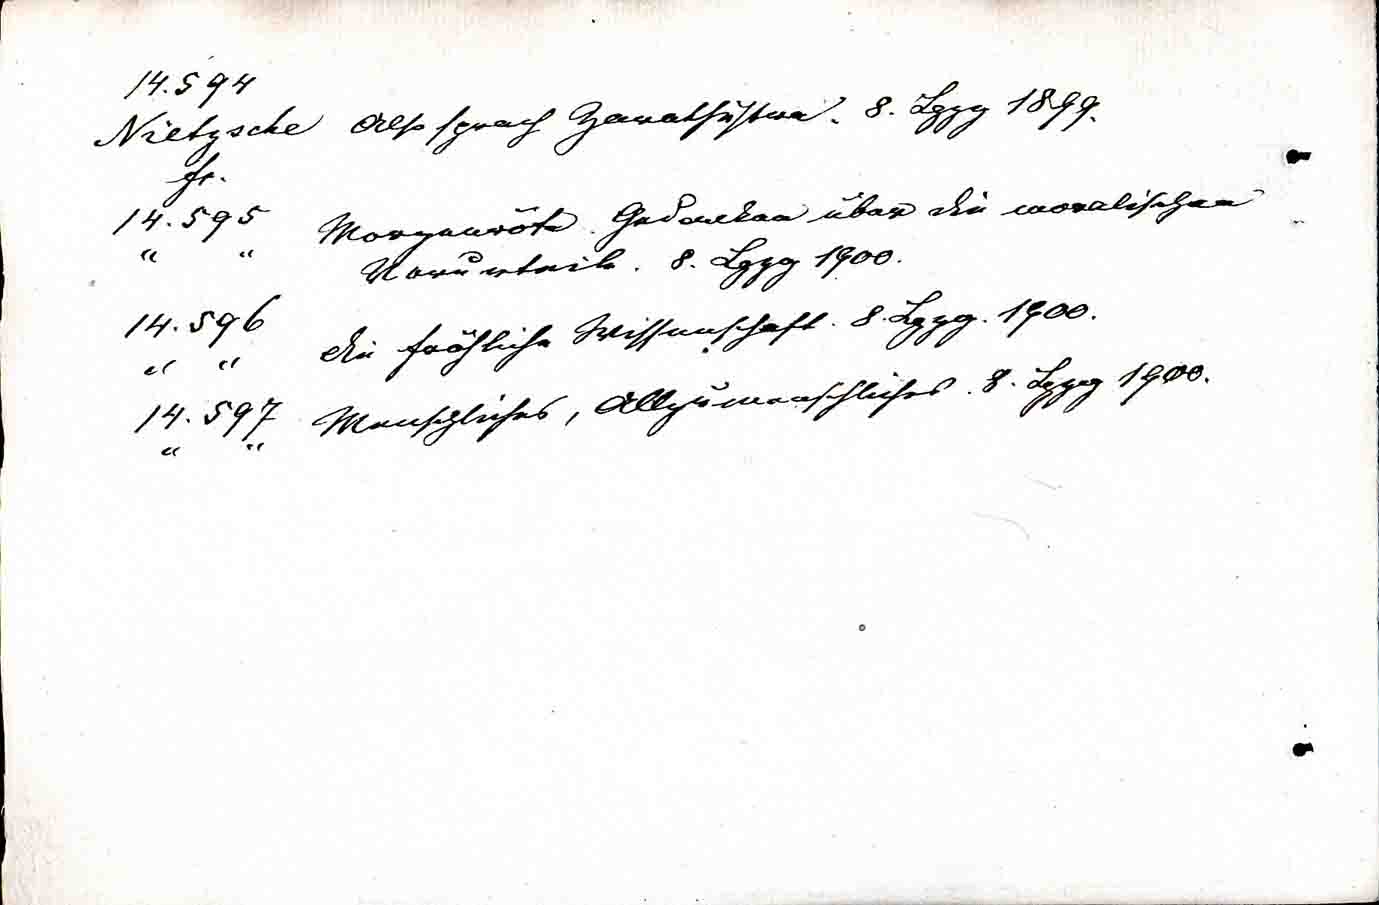 14.594
Nietzsche Also sprach Zarathustra. 8. Lpzg 1899.
Fr.
14.595 Morgenröte. Gedanken über die moralischen
" " Vorurteile. 8. Lpzg 1900.
14.596
" " Die fröhliche Wissenschaft. 8. Lpzg. 1900.
14.597 Menschliches, Allzumenschliches. 8. Lpzg 1900.
" "